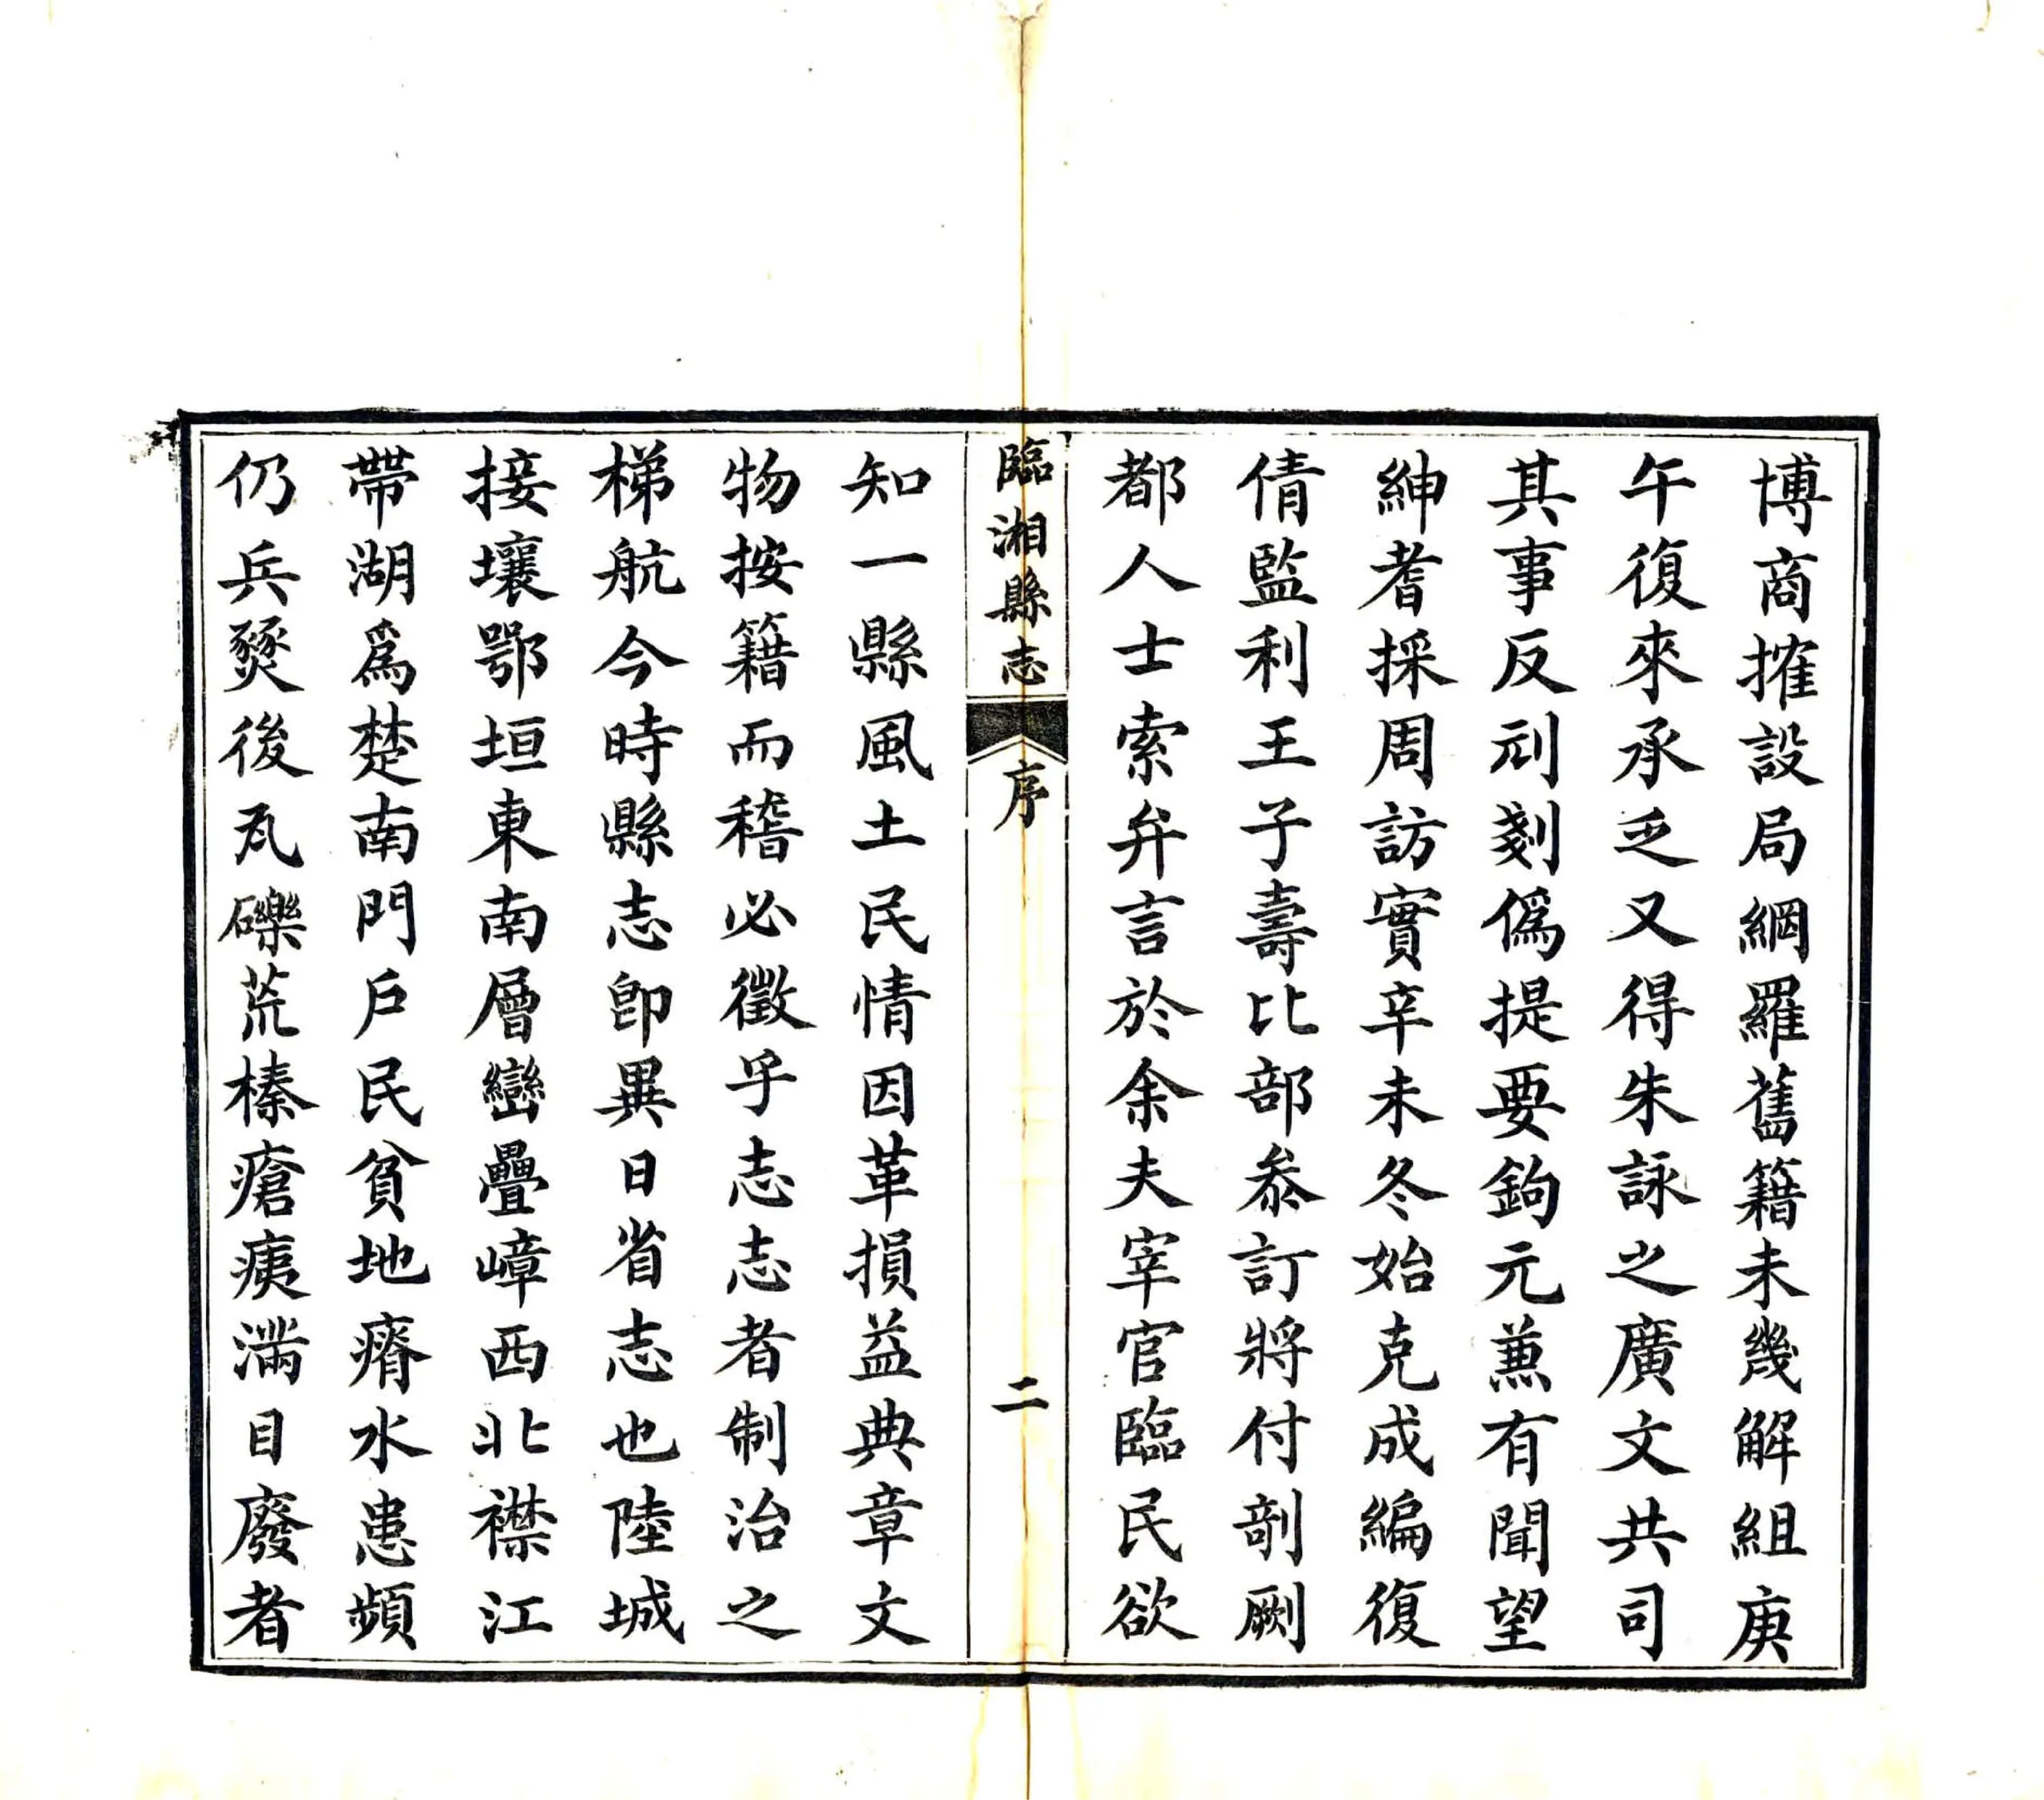 博商搉設局網羅舊籍未幾解組庚
午復來承乏又得朱詠之廣文共司
其事反刓剗僞提要鉤元蒹有聞望
紳耆採周訪實辛未冬始克成編復
倩監利王子壽比部叅訂將付剞劂
都人士索弁言於余夫宰官臨民欲
臨湘縣志
序
二
知一縣風土民情因革損益典章文
物按籍而稽必徵乎志志者制治之
梯航今時縣志卽異日省志也陸城
接壤鄂垣東南層巒疊嶂西北襟江
帶湖爲楚南門戶民貧地瘠水患頻
仍兵燹後瓦礫荒榛瘡痍滿目廢者